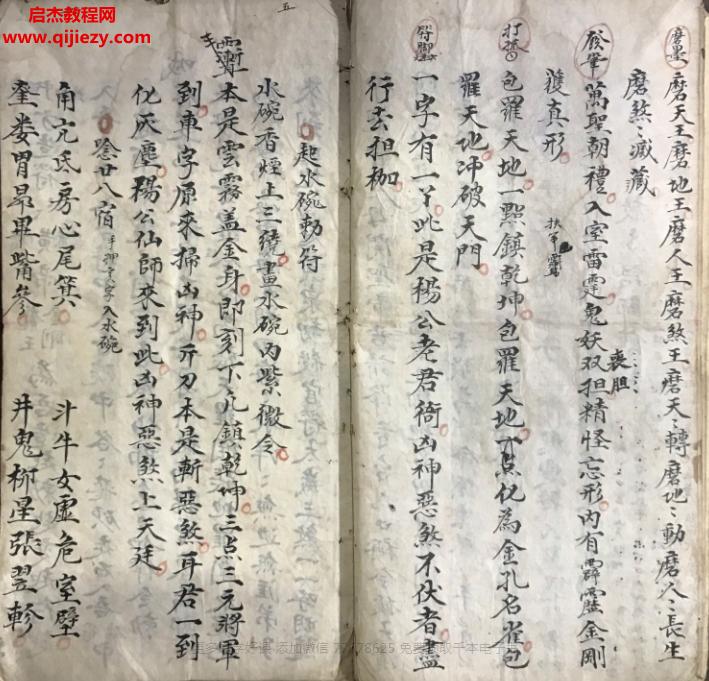 启杰教程网
www.qijiezy.com
磨墨
磨天王磨地王磨人王磨煞王磨天〻轉磨地〻動磨人〻長生
磨煞〻滅藏
發筆
萬聖朝禮入室雷霆鬼妖双担精怪忘形內有霹靂金剛
喪胆
護真形
包羅天地一點鎮乾坤包羅天地下点化為金孔名雀包
羅天地冲破天門
符脚
一字有一丫此是楊公老君衙凶神惡煞不伏者盡
行去担枷
五
起水碗勅符
水碗香煙上三繞畫水碗內紫微令
本是雲霧盖金身即刻下凡鎮乾坤三点三元將軍
到車字原來掃凶神斤刀本是斬惡煞耳君一到
化灰塵楊公仙師來到此凶神惡煞上天廷
唸廿八宿
入水碗
角亢氐房心尾箕
斗牛女虛危室壁
奎娄胃昴畢觜參
井鬼柳星張翌軫